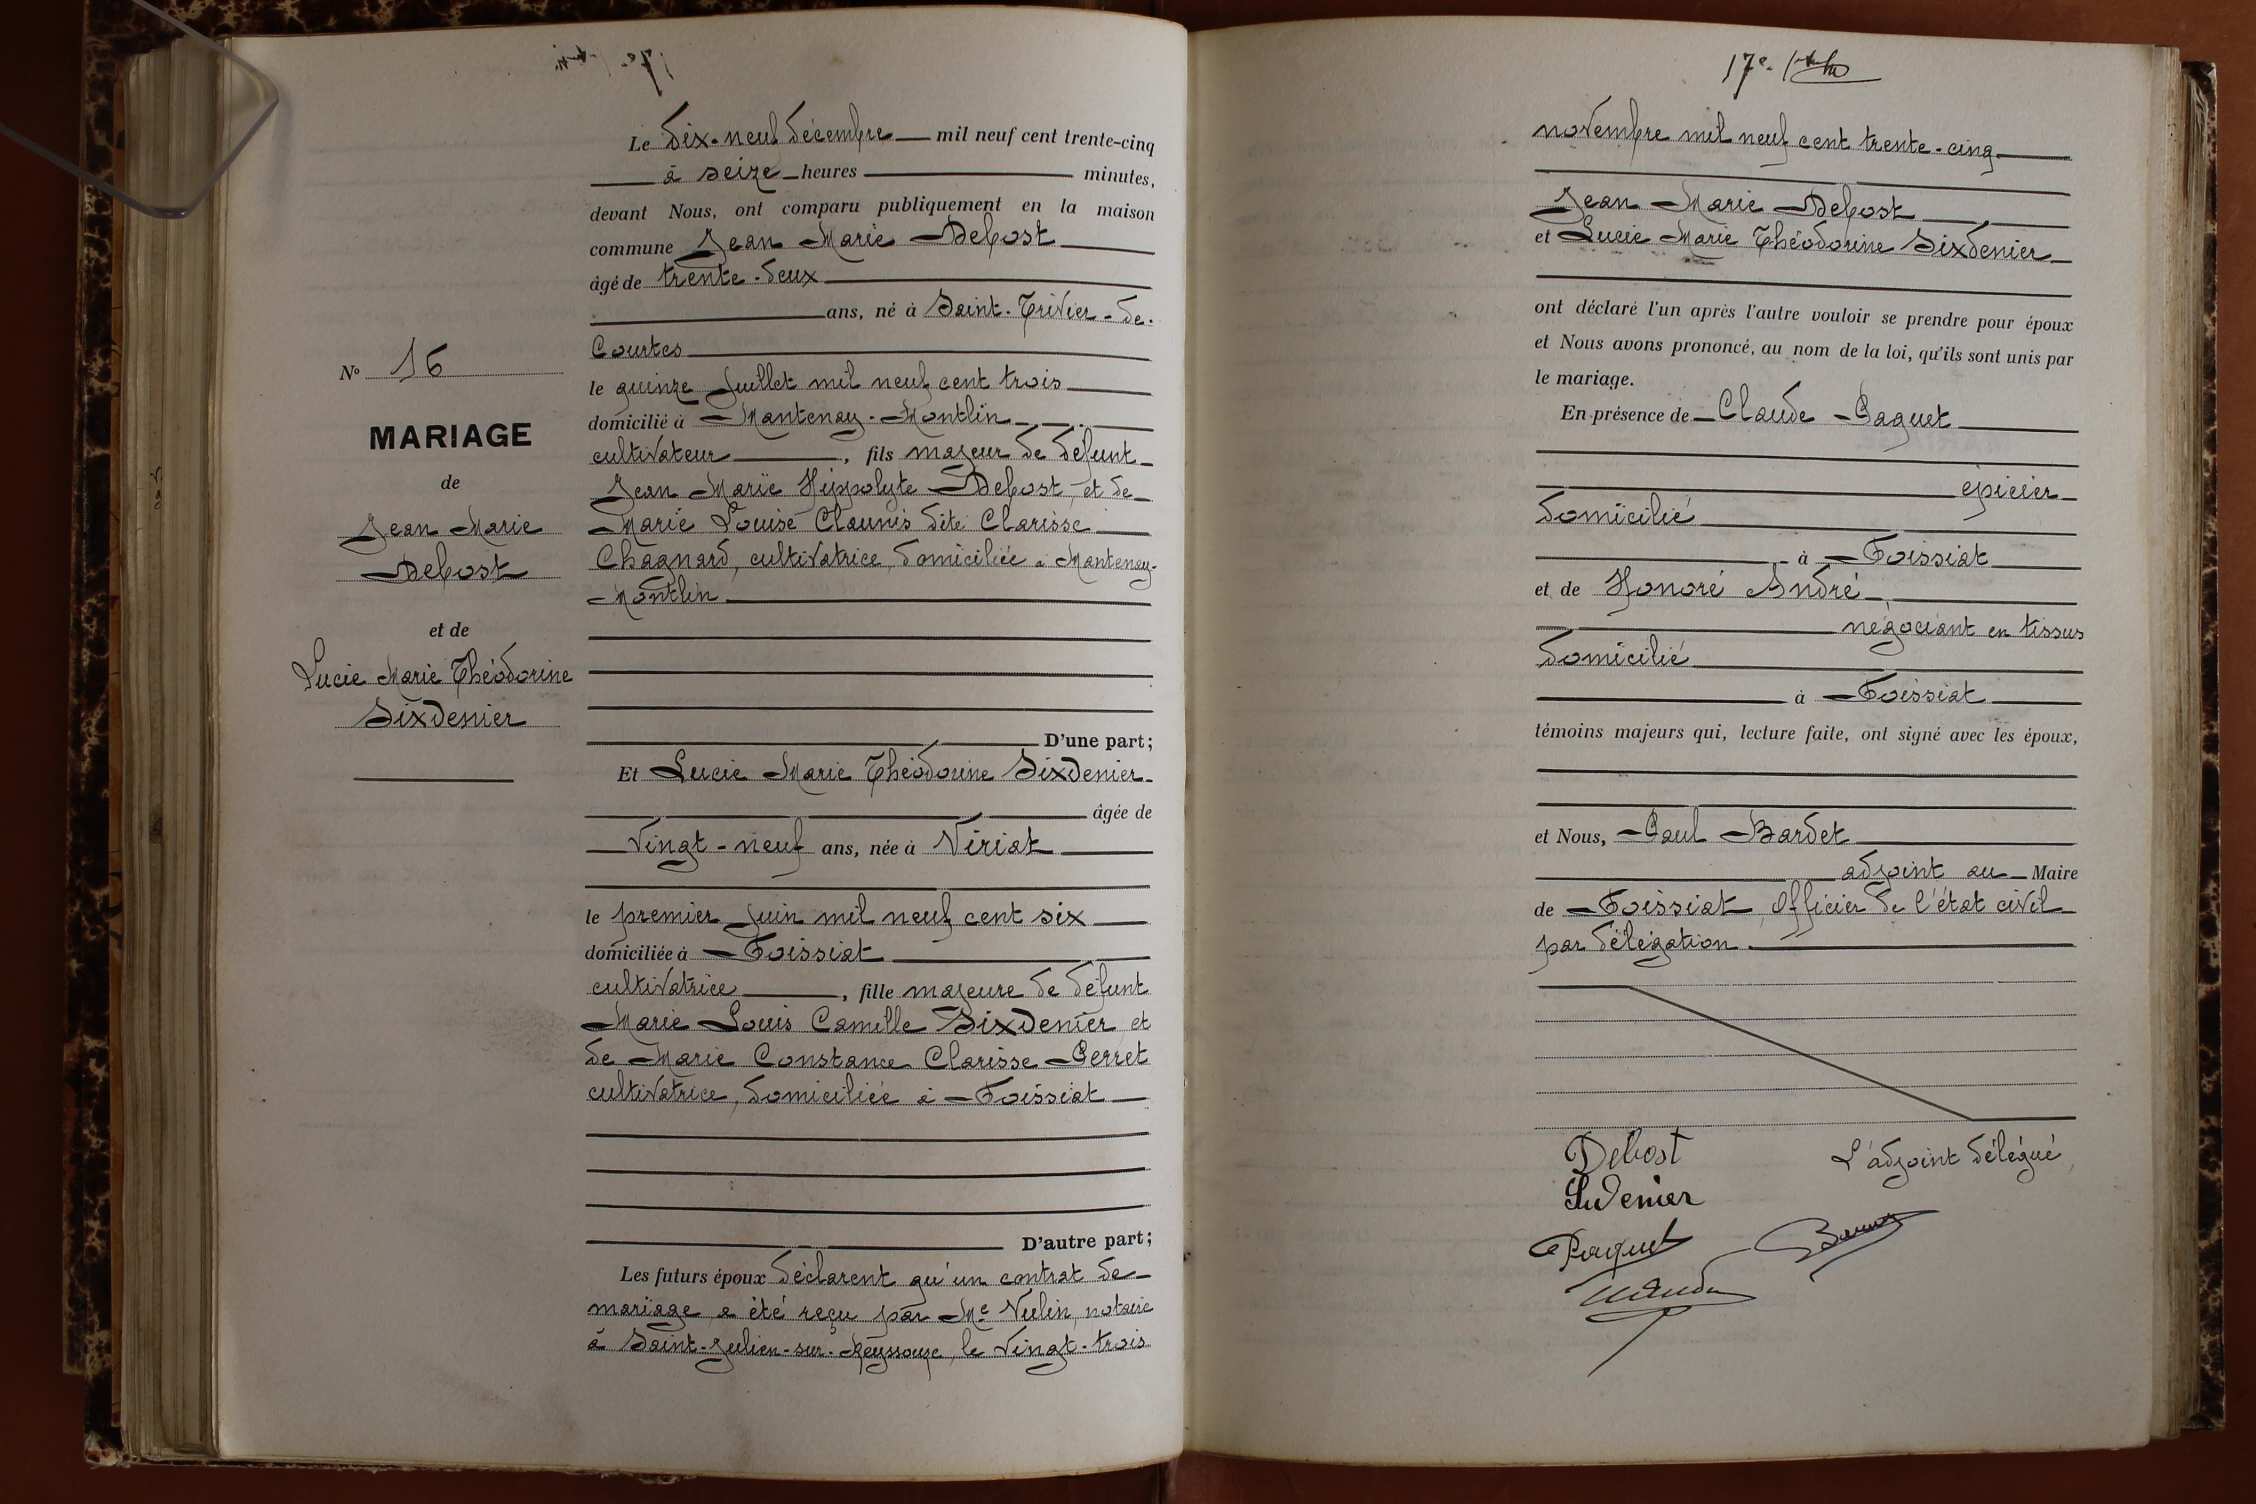 Le dix-neuf décembre mil neuf cent trente-cinq
à seize heures minutes,
devant Nous, ont comparu publiquement en la maison
commune Jean Marie Debost
âgé de trente-deux
ans, né à Saint-Trivier-de-
Courtes
le quinze Juillet mil neuf cent trois
domicilié à Mantenay-Montlin
cultivateur, fils majeur de défunt
Jean Marie Hippolyte Debost, et de
Marie Louise Claunis dite Clarisse
Chagnard, cultivatrice, domiciliée à Mantenay-
Montlin
D'une part;
Et Lucie Marie Théodorine Sixdenier
âgée de
vingt-neuf ans, née à Viriat
le premier Juin mil neuf cent six
domiciliée à Foissiat
cultivatrice, fille majeure de défunt
Marie Louis Camille Sixdenier et
de Marie Constance Clarisse Perret
cultivatrice, domiciliée à Foissiat
D'autre part;
Les futurs époux déclarent qu'un contrat de
mariage a été reçu par Me Vulin, notaire
à Saint-Julien-sur-Reyssouze, le vingt-trois
No 16
MARIAGE
de
Jean Marie
Debost
et de
Lucie Marie Théodorine
Sixdenier
17e
novembre mil neuf cent trente-cinq
Jean Marie Debost
et Lucie Marie Théodorine Sixdenier
ont déclaré l'un après l'autre vouloir se prendre pour époux
et Nous avons prononcé, au nom de la loi, qu'ils sont unis par
le mariage.
En présence de Claude Paquet
épicier
domicilié
à Foissiat
et de Honoré André
négociant en tissus
domicilié
à Foissiat
témoins majeurs qui, lecture faite, ont signé avec les époux,
et Nous, Paul Bardet
adjoint au Maire
de Foissiat, Officier de l'état civil
par délégation.
Debost L'adjoint délégué,
Sixdenier
Paquet